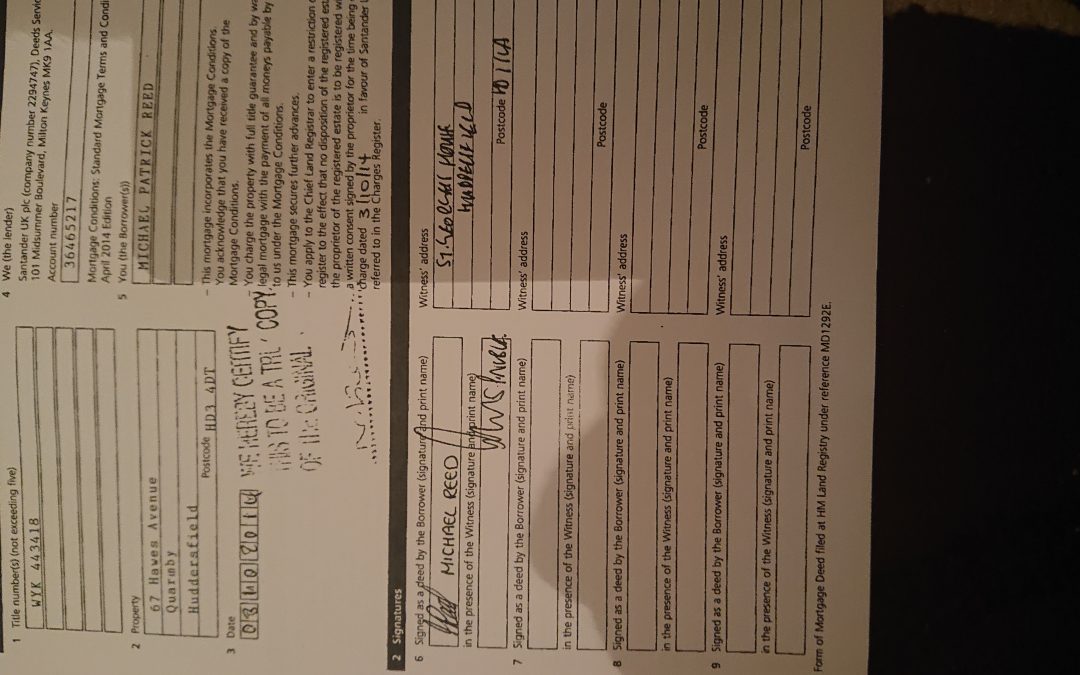 1 Title number(s) (not exceeding five)
WYK 443418
2 Property
67 Hawes Avenue
Quarmby
Huddersfield
Postcode HD3 4DT
3 Date
WE HEREBY CERTIFY
THIS TO BE A TRUE COPY
OF THE ORIGINAL.
4 We (the lender)
Santander UK plc (company number 2294747), Deeds Servic
101 Midsummer Boulevard, Milton Keynes MK9 1AA.
Account number
36465217
Mortgage Conditions: Standard Mortgage Terms and Condi
April 2014 Edition
5 You (the Borrower(s))
MICHAEL PATRICK REED
– This mortgage incorporates the Mortgage Conditions.
You acknowledge that you have received a copy of the
Mortgage Conditions.
– You charge the property with full title guarantee and by wa
legal mortgage with the payment of all moneys payable by
to us under the Mortgage Conditions.
– This mortgage secures further advances.
– You apply to the Chief Land Registrar to enter a restriction
register to the effect that no disposition of the registered est
the proprietor of the registered estate is to be registered w
a written consent signed by the proprietor for the time being
charge dated 3/10/14 in favour of Santander
referred to in the Charges Register.
2 Signatures
6 Signed as a deed by the Borrower (signature and print name)
MICHAEL REED
in the presence of the Witness (signature and print name)
Witness' address
ST. GEORGES
HUDDERSFIELD
Postcode HD1 1LA
7 Signed as a deed by the Borrower (signature and print name)
in the presence of the Witness (signature and print name)
Witness' address
Postcode
8 Signed as a deed by the Borrower (signature and print name)
in the presence of the Witness (signature and print name)
Witness' address
Postcode
9 Signed as a deed by the Borrower (signature and print name)
in the presence of the Witness (signature and print name)
Witness' address
Postcode
Form of Mortgage Deed filed at HM Land Registry under reference MD1292E.